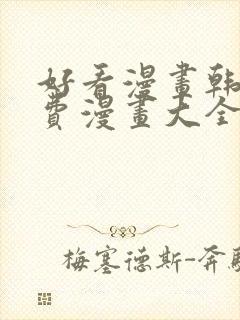 好看漫畫韩
費漫畫大全
梅塞德斯-奔馳